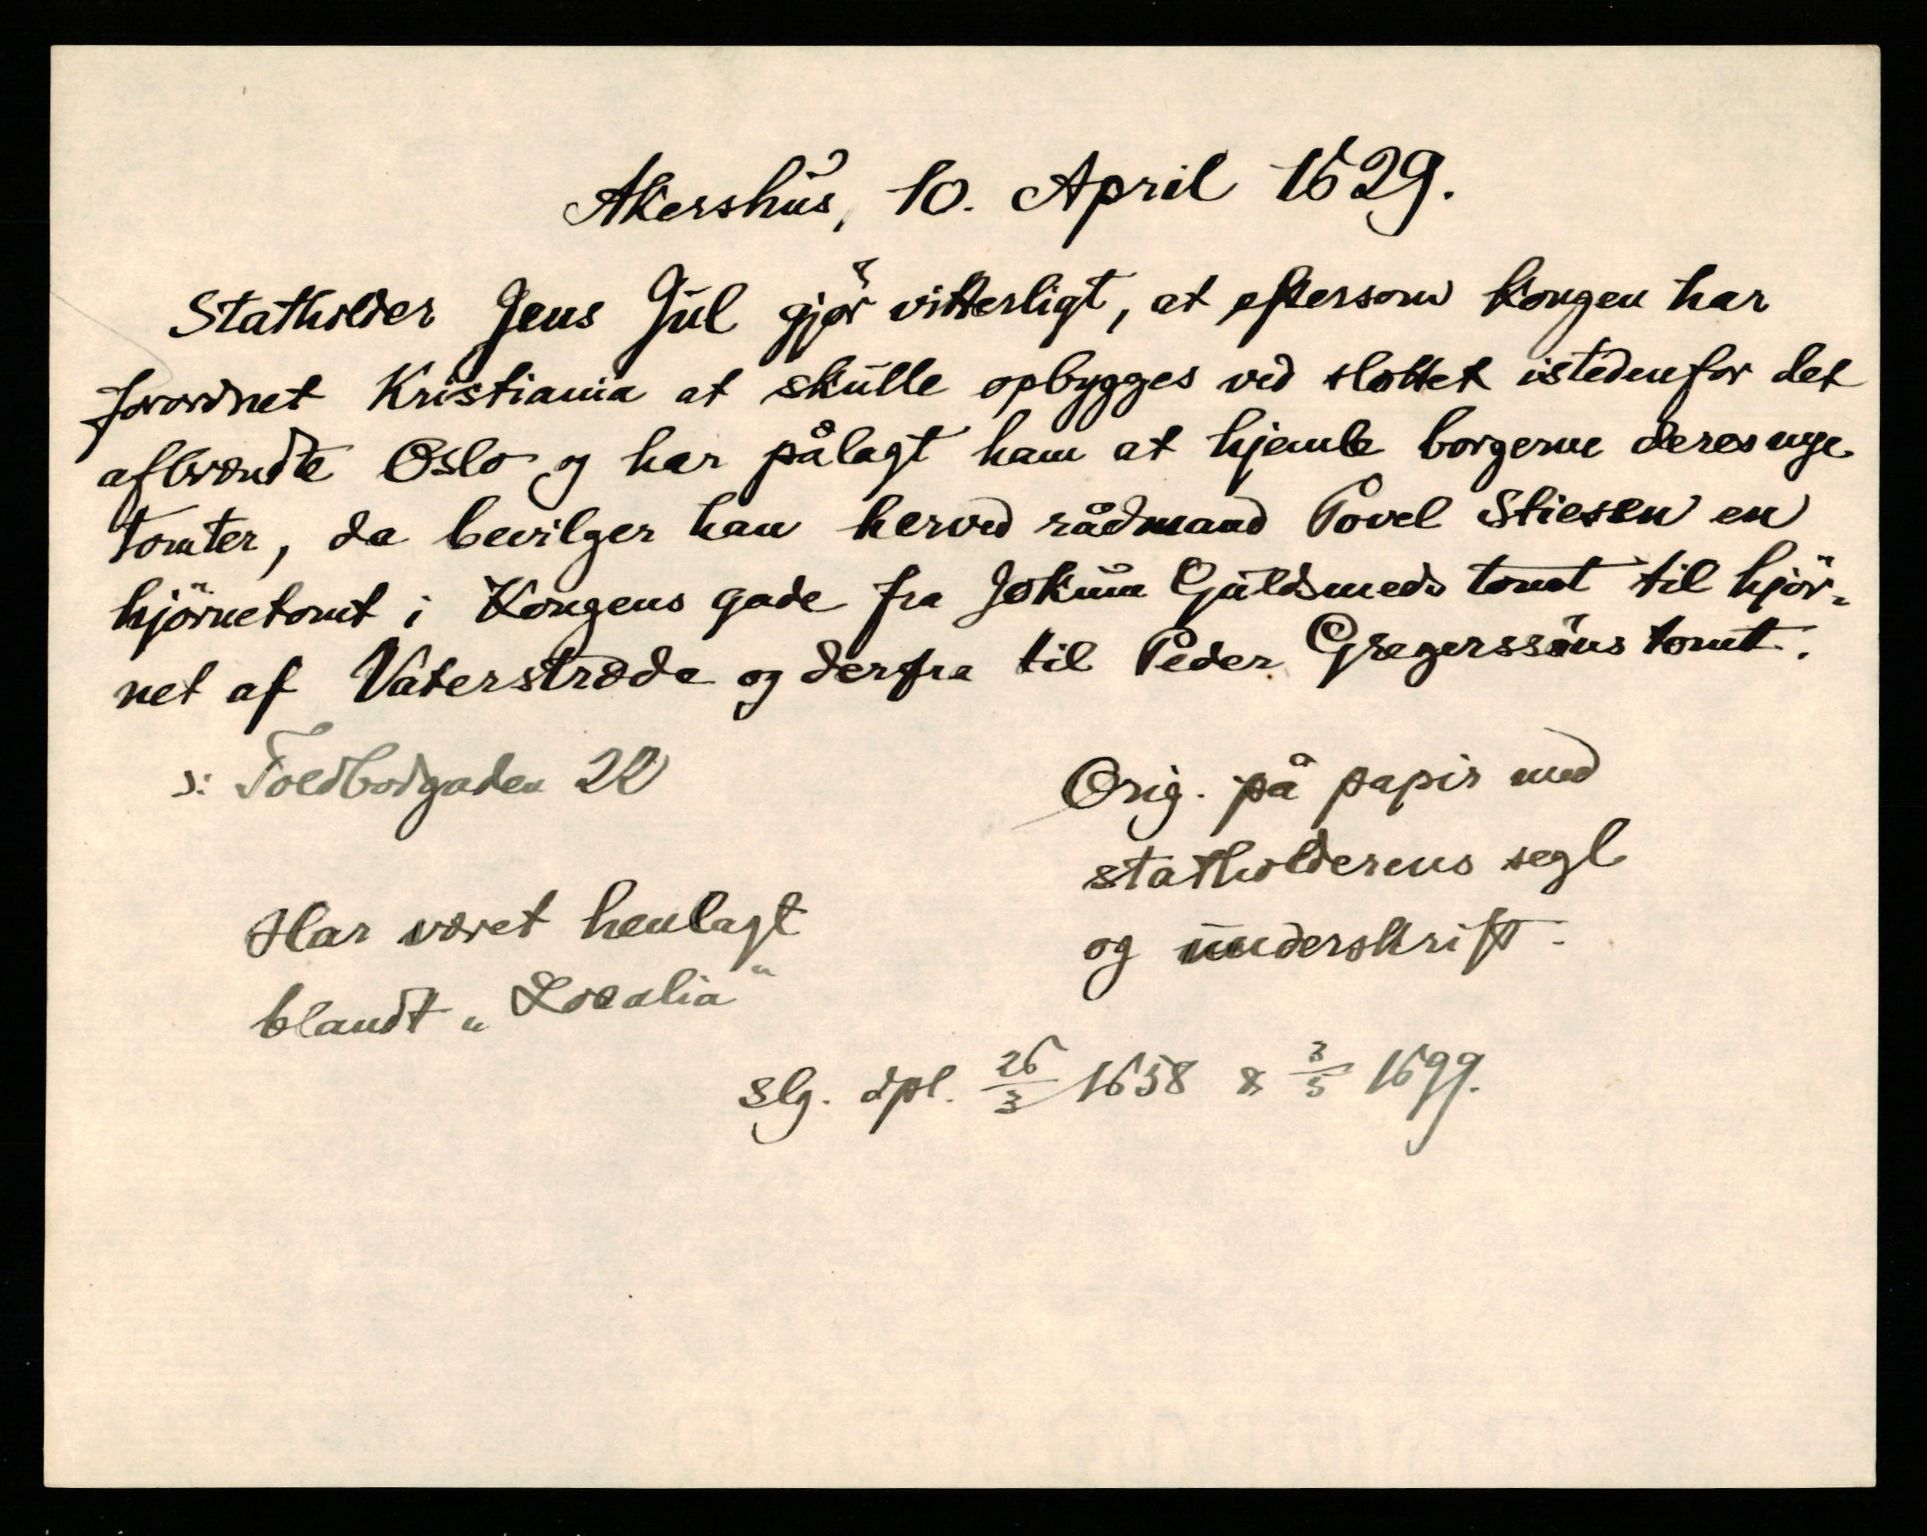 Akershus, 10. April 1629.
Statholder Jens Jul gjør vitterligt, at eftersom kongen har
forordnet Kristiania at skulle opbygges ved slottet istedenfor det
afbrændte Oslo og har pålagt ham at hjemle borgerne deres nye
tomter, da bevilger han herved rådmand Povel Stiesen en
hjørnetomt i Kongens gade fra Jokum Guldsmeds tomt til hjør-
net af Vaterstræde og derfra til Peder Gregerssöns tomt.
ɔ: Toldbodgaden 22
Orig. på papir med
statholderens segl
og underskrift.
Har været henlagt
blandt „Localia"
slg. dpl. 26/3 1658 & 3/5 1699.